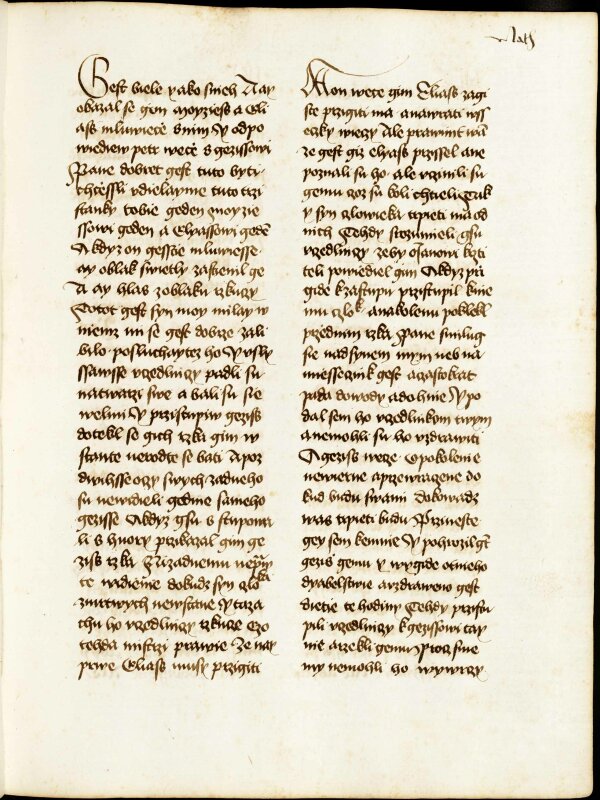 Math
Gest biele yako snieh A ay
okazal se gim moyziess a Eli
ass mluwiece snim y odpo
wiediew petr wece s gezissowi
Pane dobret gest tuto byti
chcessli vdielayme tuto trzi
stanky tobie geden moyzie
ssowi geden a Elyassowi geden
A kdyz on gesscie mluwiesse
ay oblak swietly zastienil ge
A ay hlas zoblaku rzkuczy
Totot gest syn moy mily w
niemz mi se gest dobrze zali
bilo posluchaytez ho y vsly
ssawsse vczedlniczy padli su
natwarzi swe a bali su sie
welmi y przistupiw geziss
dotekl se gich rzka gim w
stante nerodte se bati A poz
dwihsse oczy swych zadneho
su newidieli gedine sameho
gezisse A kdyz gsu s stupowa
li s huory przikazal gim ge
ziss rzka Nizadnemu neprawi
te widienie dokudz syn clo
wieka
zmrtwych newstane y taza
chu ho vczedlniczy rzkucze Czo
tehda mistrzi prawie ze nay
prwe Eliass musy przigiti
A on wece gim Eliass zagi
ste przigiti ma anawrati wss
eczky wieczy Ale prawimt wam
ze gest giz elyass przissel ane
poznali su ho ale vczinili su
gemu czoz su koli chtieli Tak
y syn czlowieka trpieti ma od
nich Tehdy srozumieli gsu
vczedlniczy zeby o Janowi krzti
teli powiediel gim A kdyz przi
gide k zastupu przistupil knie
mu czlowiek anakolenu poklekl
przednim rzka Pane smilug
sie nadsynem mym neb na
miesseczník gest a czastokrat
pada dowody adohnie y po
dal sem ho vczedlnikom twym
anemohli su ho vzdrawiti
A geziss wece O pokolenie
newierne aprzewracene do
kud budu swami dokawadz
was trpieti budu Przineste
gey sem kemnie y pohrozil gt
geziss gemu y wygide otneho
dyabelstwie avzdraweno gest
dietie te hodiny Tehdy przistu
pili vczedlniczy k gezissowi tay
nie arzekli gemu Procz sme
my nemohli ho wywrczy